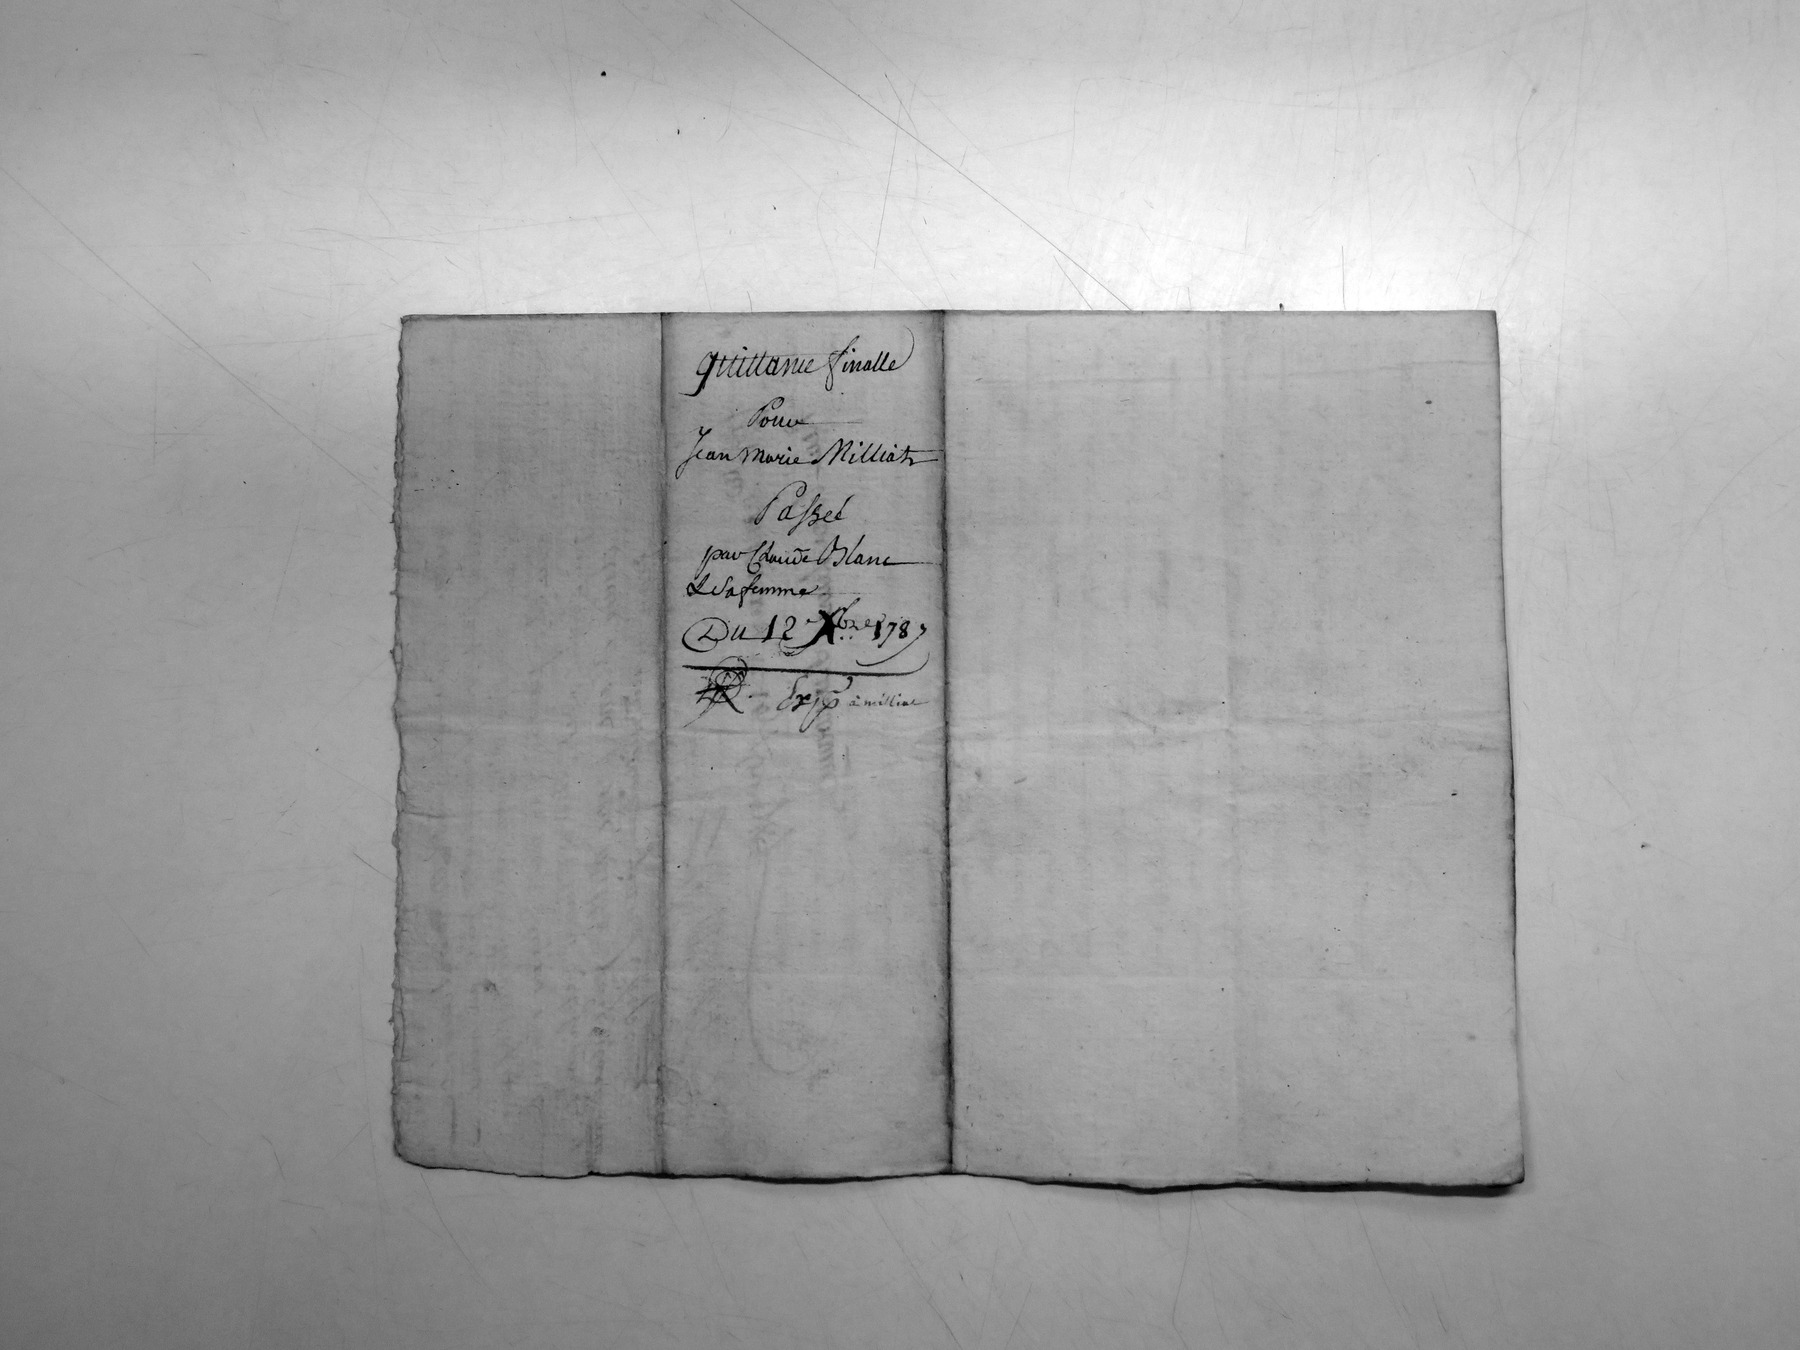 quittance finalle
Pour
Jean Marie Milliat
Passeé
par Claude Blanc
& sa femme
Du 12 Xbre 1787
Exp à milliat